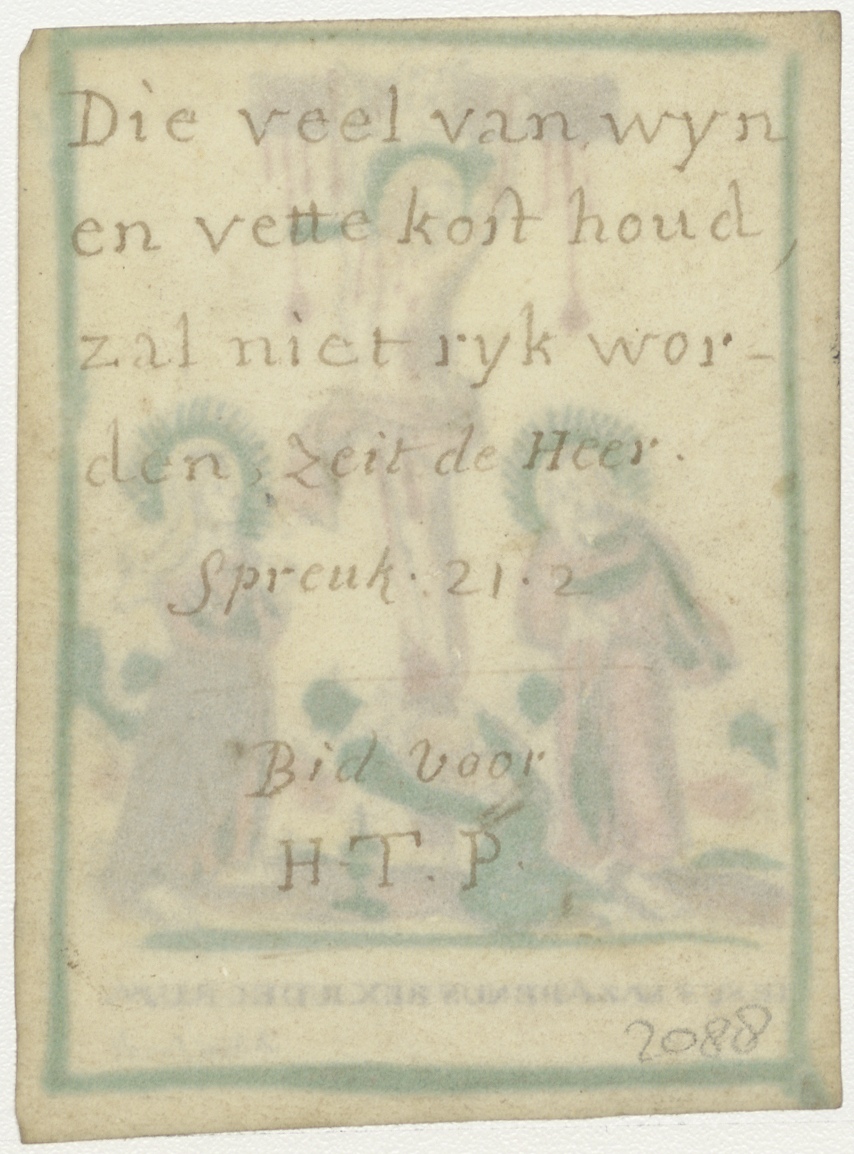 Die veel van wyn
en vette kost houd,
zal niet ryk wor-
den, zeit de Heer.
Spreuk. 21. 2
Bid voor
H. T. P.
2088